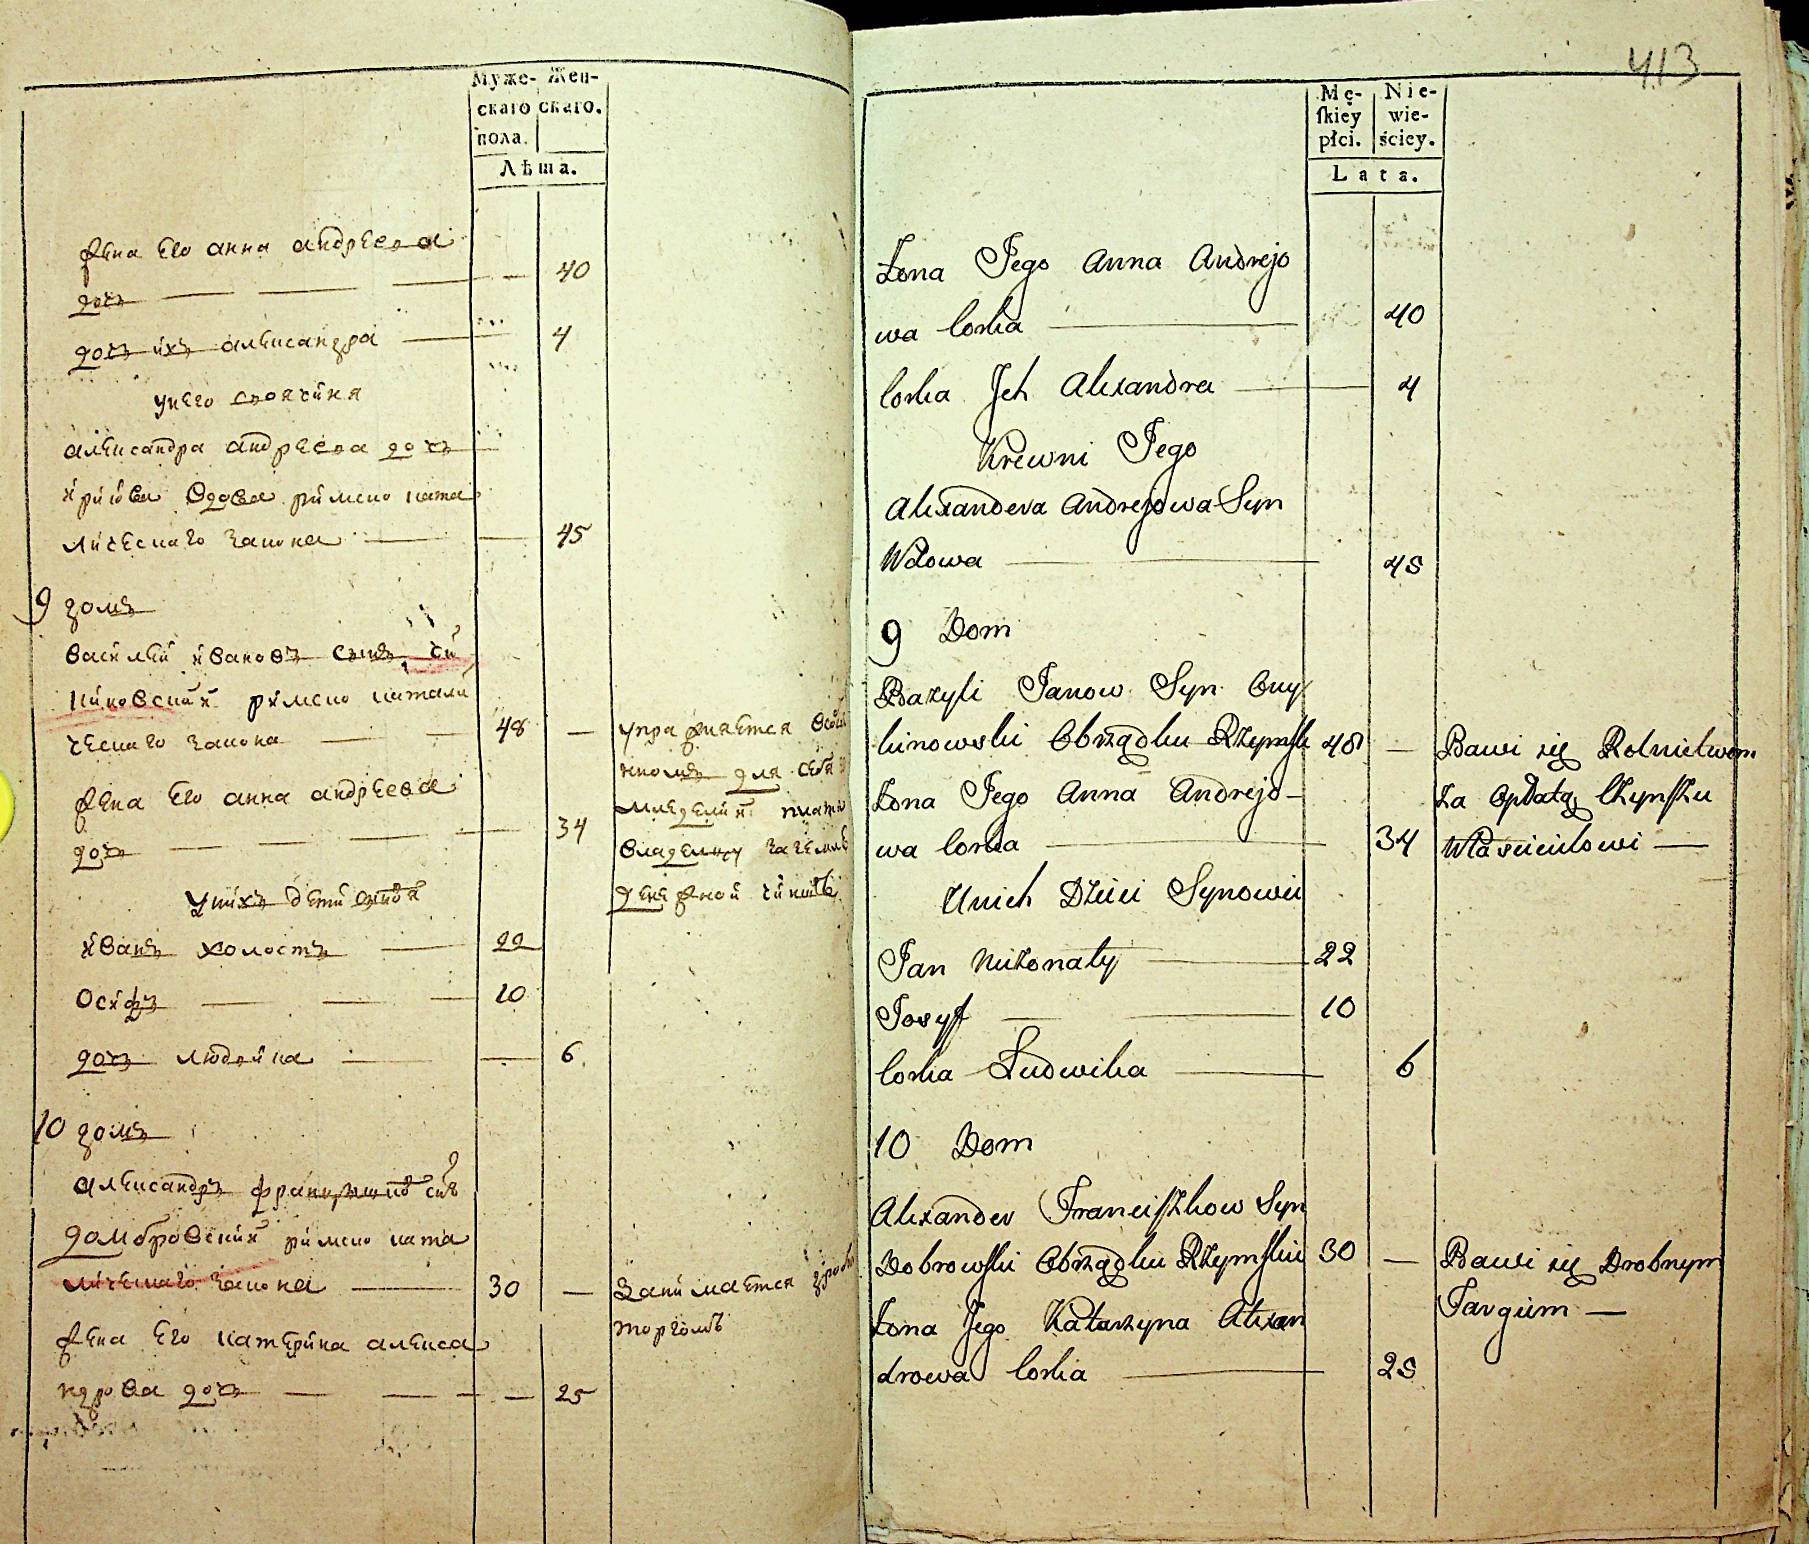 Муже- Жен-
скаго скаго.
пола.
Лѣта.
жена Его анна андрѣева
дочь 40
дочь ихъ александра 4
у него своячиня
александра андрѣева дочь
вдова римско като
лическаго закона 45
9 домъ
василий ивановъ сынъ
римско католи
ческаго закона 48 — упражняется
жена Его анна андрѣева для себя
дочь 34
владельцу
у нихъ дети
денежной
иванъ холостъ 22
осифъ 10
дочь людвика 6
10 домъ
александръ францишковъ сынъ
домбровский римско като
лическаго закона 30 — занимается
жена Его катерина алекса торгомъ
ндрова дочь — 25
413
Mę- Nie-
ſkiey wie-
płci. ściey.
Lata.
Żona Jego Anna Andrejo
wa Corka 40
Corka Jch Alexandra 4
Krewni Jego
Alexandera Andrejowa Syn
Wdowa 45
9 Dom
Bazyli Janow Syn Cuy
kinowski Obrządku Rzymsk 48 — Bawi się Rolnictwem
Żona Jego Anna Andrejo- za Opłatą Czynszu
wa Corka 34 Właścicielowi —
Unich Dzieci Synowie
Jan nieżonaty 22
Josyf 10
Corka Ludwika 6
10 Dom
Alexander Franciszkow Syn
Dobrowski Obrządku Rzymskie 30 — Bawi się Drobnym
Żona Jego Katarzyna Alexan Targiem —
drowa Corka 25